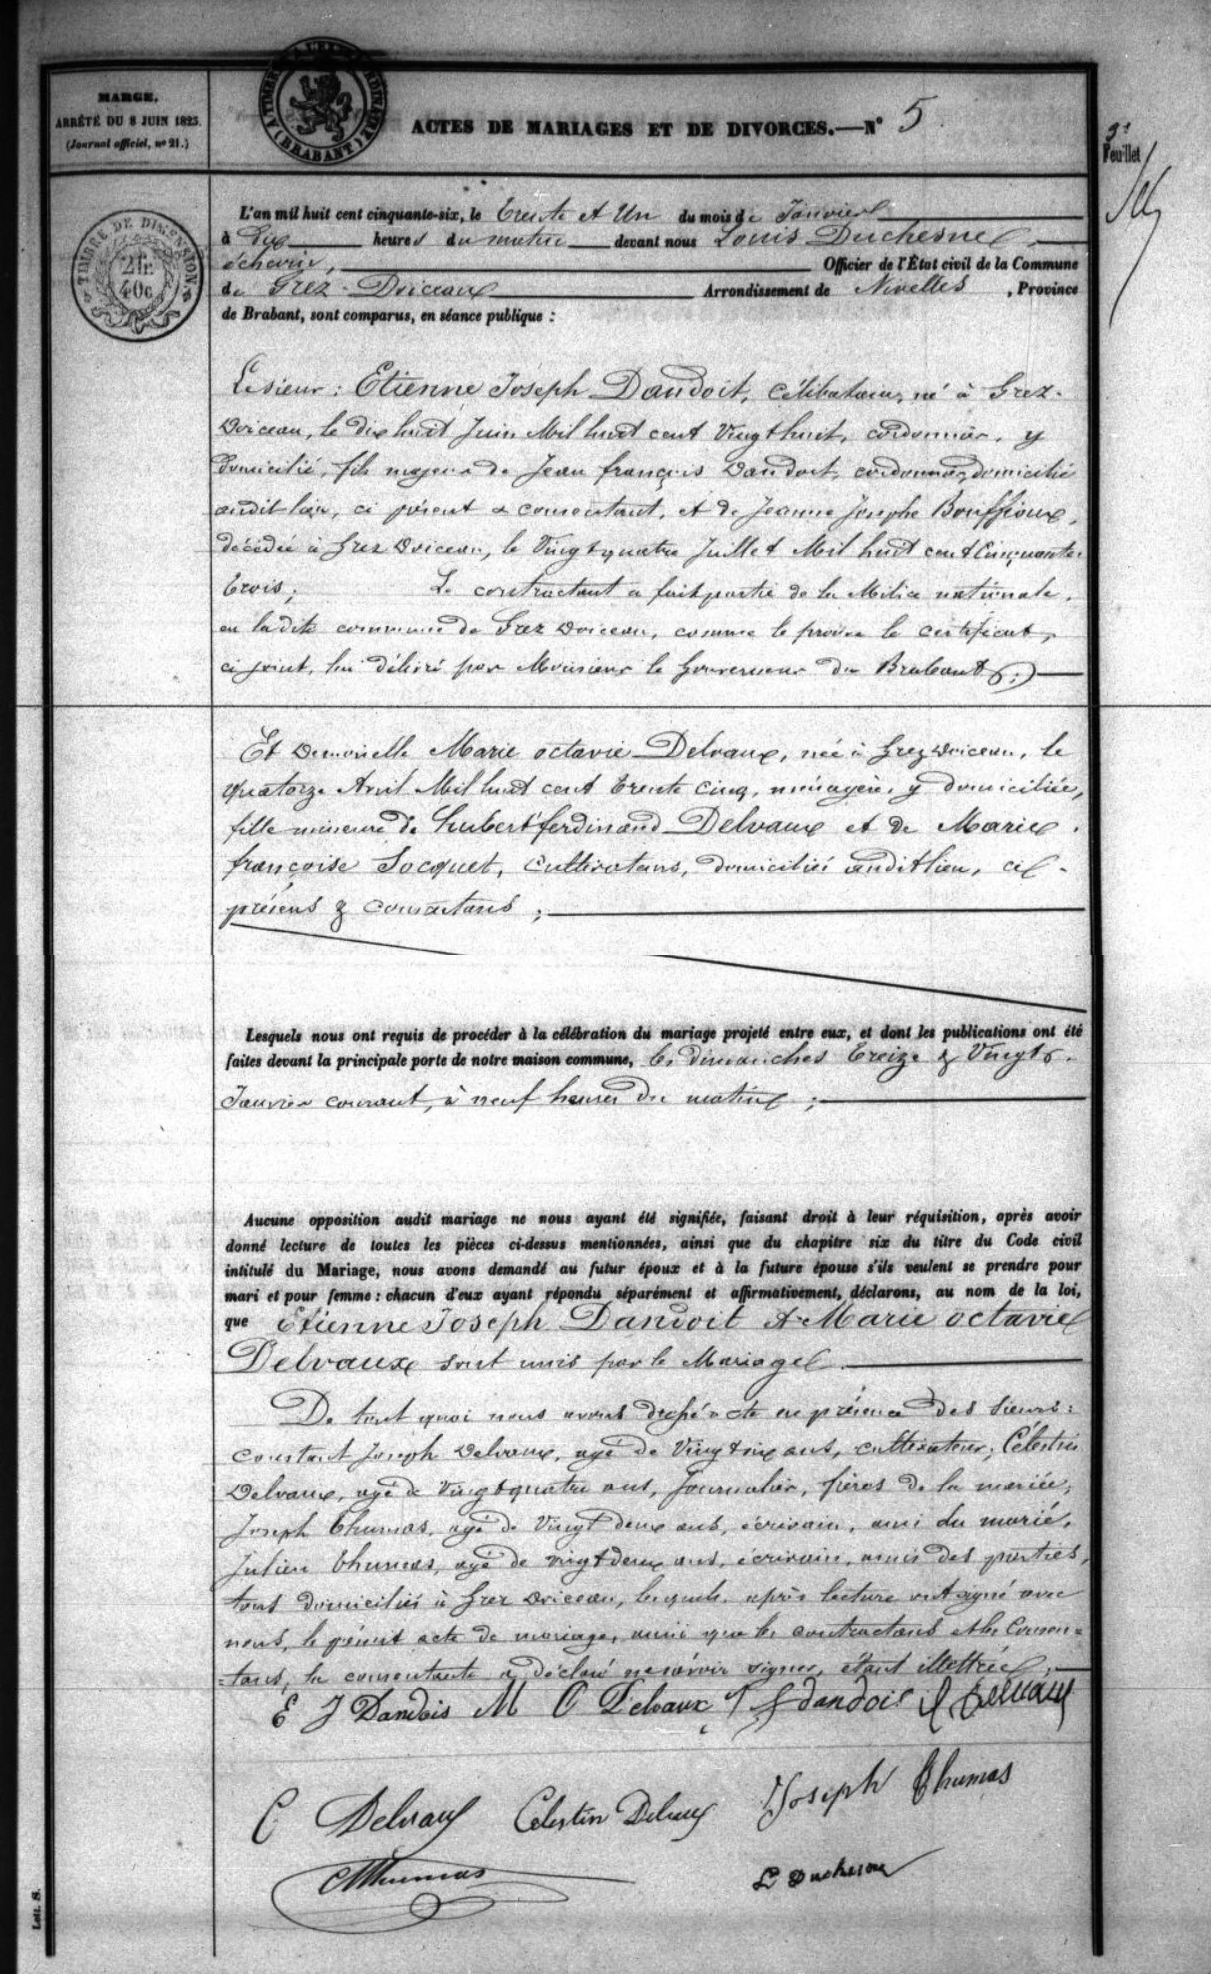 MARGE.
ARRÊTÉ DU 8 JUIN 1825.
(Journal officiel, nº 21.)
(BRABANT)
ACTES DE MARIAGES ET DE DIVORCES.—Nº 5
3e
Feuillet
TIMBRE DE DIMENSION
2fr.
40c
L'an mil huit cent cinquante-six, le Trente et Un du mois de Janvier
à Dix heures du matin devant nous Louis Duchesne,
échevin, Officier de l'État civil de la Commune
de Grez-Doiceau Arrondissement de Nivelles, Province
de Brabant, sont comparus, en séance publique :
Le sieur : Etienne Joseph Dandoit, célibataire, né à Grez-
Doiceau, le dix huit Juin Mil huit cent Vingt huit, cordonnier, y
domicilié, fils majeur de Jean françois Dandoit, cordonnier, domicilié
audit lieu, ci présent & consentant, et de Jeanne Josephe Bouffioux,
décédée à Grez Doiceau, le Vingt quatre Juillet Mil huit cent Cinquante
trois; Le contractant a fait partie de la Milice nationale,
en ladite commune de Grez Doiceau, comme le prouve le certificat,
ci joint, lui délivré par Monsieur le Gouverneur du Brabant;
Et Demoiselle Marie octavie Delvaux, née à Grez Doiceau, le
quatorze Avril Mil huit cent trente cinq, ménagère, y domiciliée,
fille mineure de hubert ferdinand Delvaux et de Marie
françoise Socquet, Cultivateurs, domiciliés audit lieu, ci
présens & consentans ;
Lesquels nous ont requis de procéder à la célébration du mariage projeté entre eux, et dont les publications ont été
faites devant la principale porte de notre maison commune, les dimanches treize & Vingt
Janvier courant, à neuf heures du matin ;
Aucune opposition audit mariage ne nous ayant été signifiée, faisant droit à leur réquisition, après avoir
donné lecture de toutes les pièces ci-dessus mentionnées, ainsi que du chapitre six du titre du Code civil
intitulé du Mariage, nous avons demandé au futur époux et à la future épouse s'ils veulent se prendre pour
mari et pour femme : chacun d'eux ayant répondu séparément et affirmativement, déclarons, au nom de la loi,
que Etienne Joseph Dandoit et Marie octavie
Delvaux sont unis par le Mariage.
De tout quoi nous avons dressé acte en présence des Sieurs:
constant Joseph Delvaux, agé de Vingt six ans, cultivateur; Célestin
Delvaux, agé de Vingt quatre ans, Journalier, frères de la mariée,
Joseph Thumas, agé de Vingt deux ans, écrivain, ami du marié,
Julien Thumas, agé de vingt deux ans, écrivain, amis des parties,
tous domiciliés à Grez Doiceau, lesquels, après lecture ont signé avec
nous, le présent acte de mariage, ainsi que les contractans et les Consen=
=tans, la consentante a déclaré ne savoir signer, étant illettrée.
E J Dandois M O Delvaux J f dandois Delvaux
C Delvaux Celestin Delvaux Joseph Thumas
Thumas L Duchesne
Lett. S.